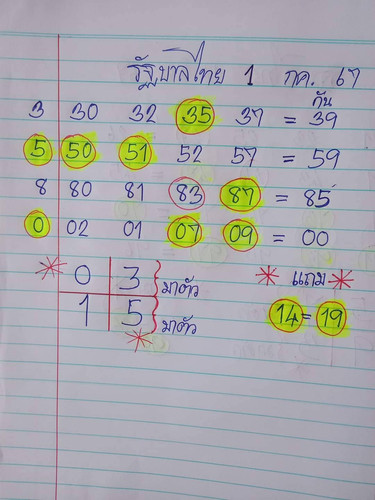 รัฐบาลไทย 1 กค. 67
กัน
3 30 32 35 37 = 39
5 50 51 52 57 = 59
8 80 81 83 87 = 85
0 02 01 07 09 = 00
0 3 มาตัว แถม
1 5 มาตัว 14 = 19